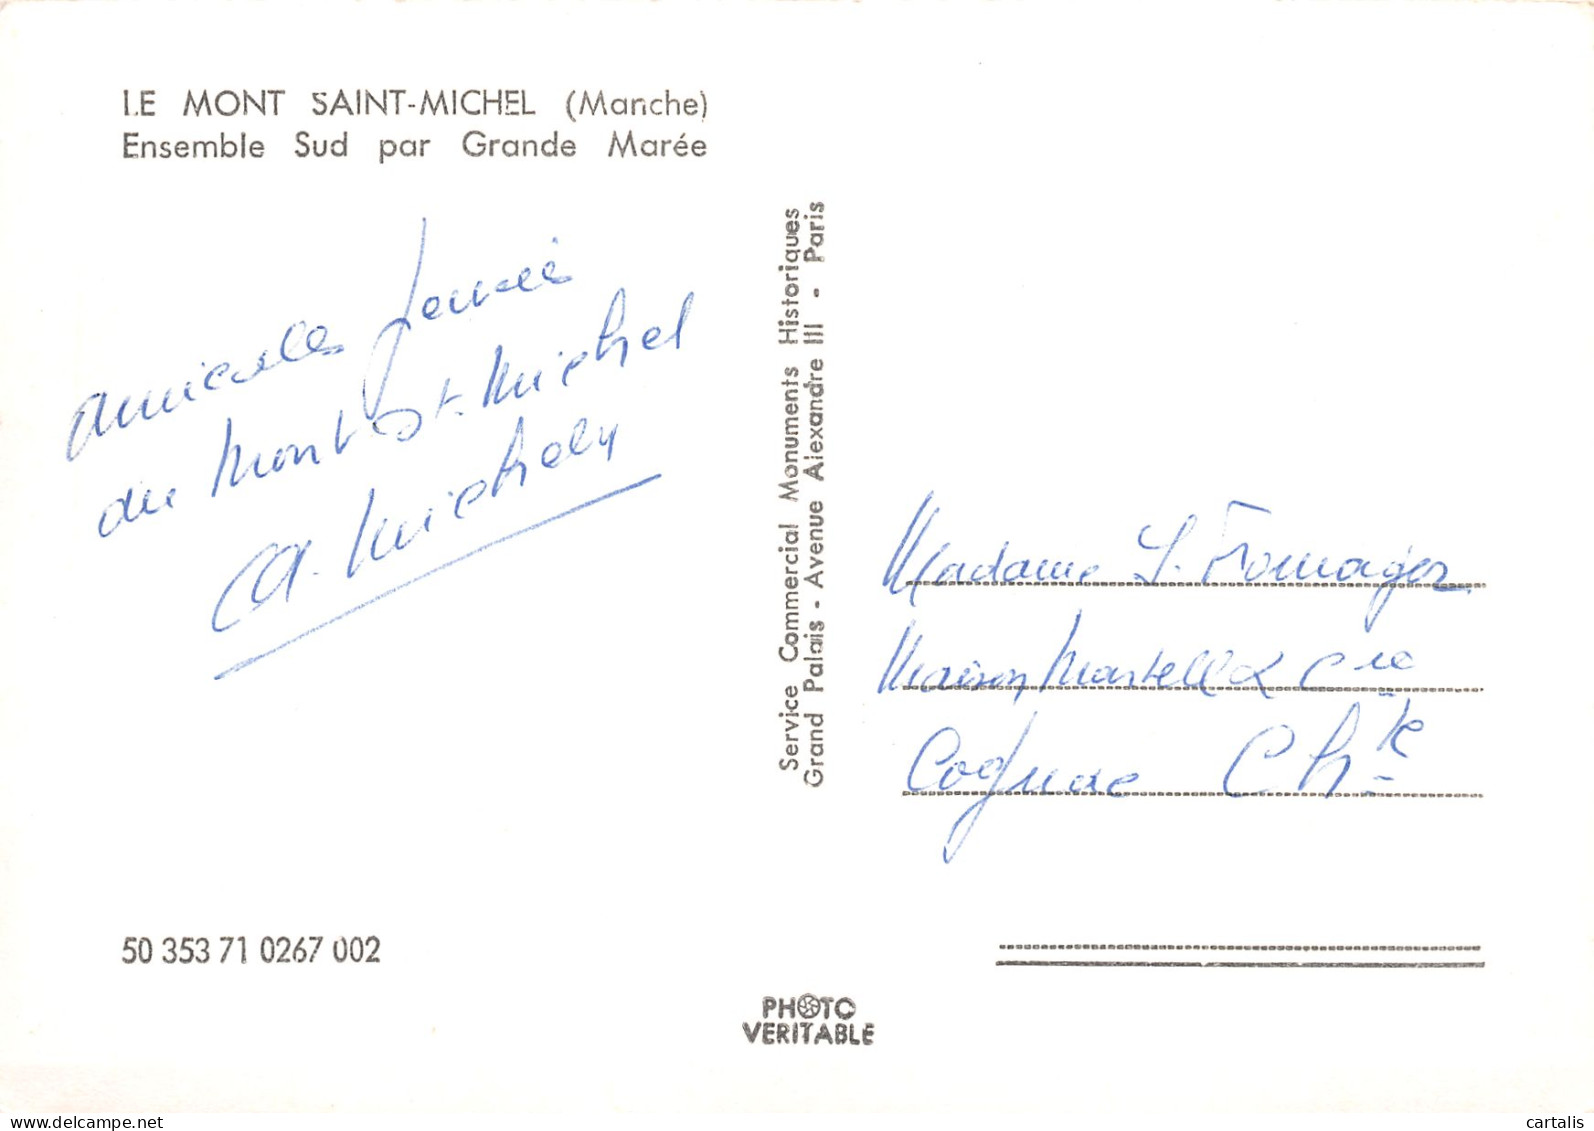 LE MONT SAINT-MICHEL (Manche)
Ensemble Sud par Grande Marée
amicales pensée
du Mont St. Michel
A. Michely
50 353 71 0267 002
Service Commercial Monuments Historiques
Grand Palais - Avenue Alexandre III - Paris
Madame Fomager
Maison Martell & Cie
Cognac Chte
PHOTO
VERITABLE
cartalis